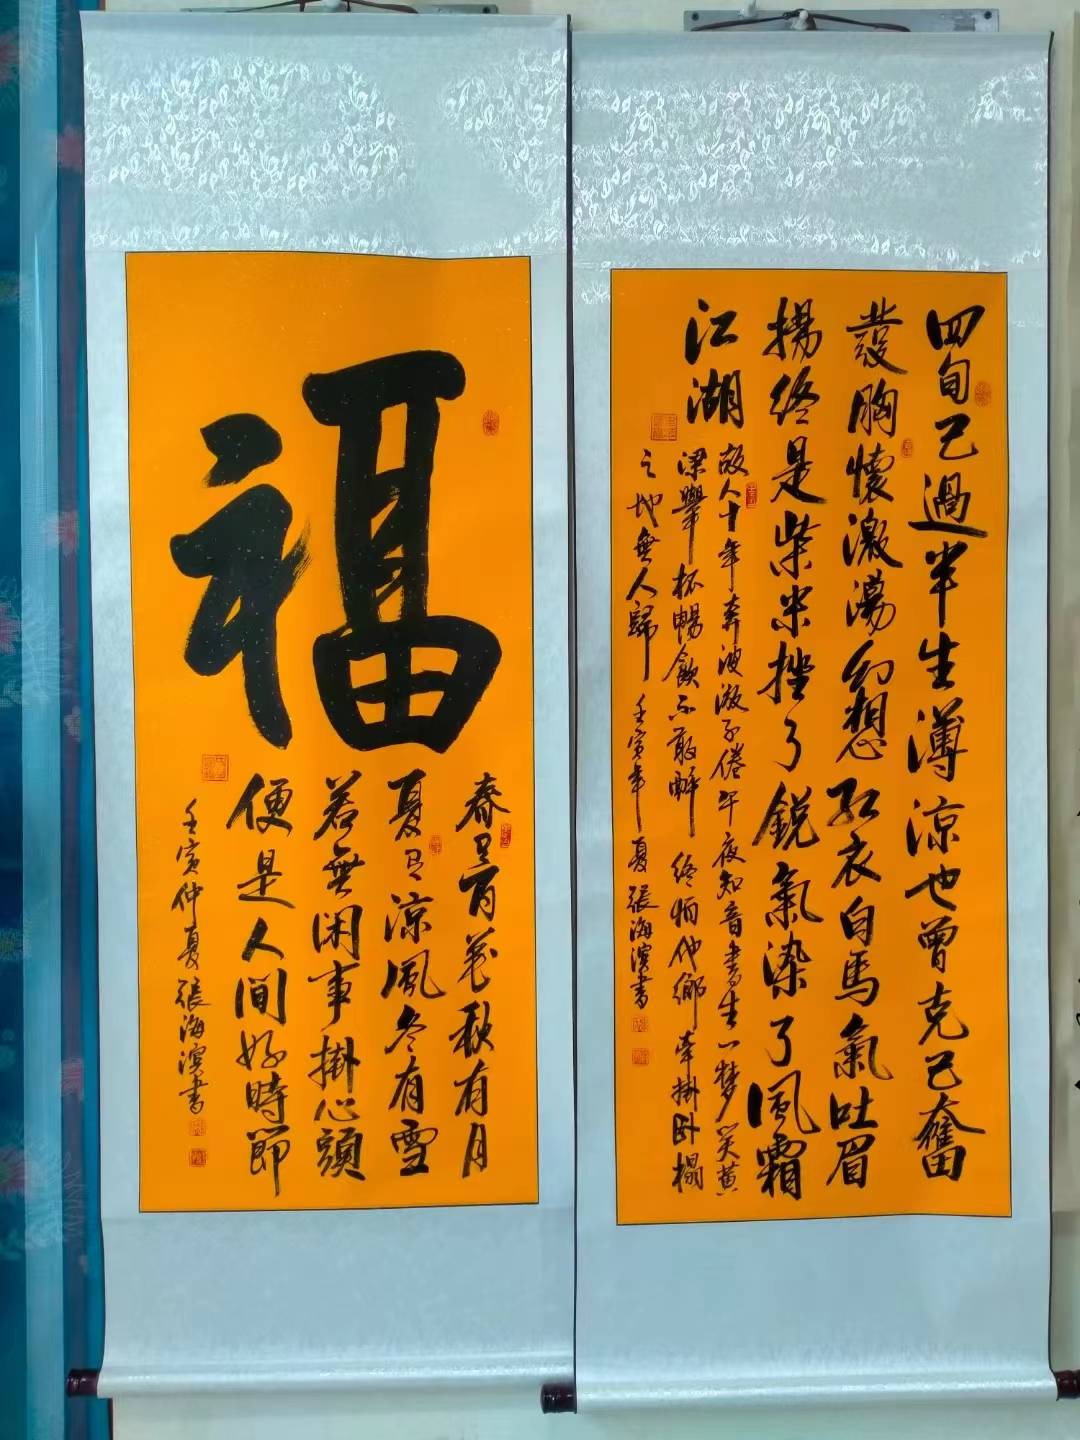 四旬已過半生薄涼也曾克己奮
發胸懷激蕩幻想紅衣白馬氣吐眉
揚終是柴米挫了銳氣染了風霜
江湖
故人十年奔波倦午夜知音書生一夢笑黃
粱舉杯暢飲不敢醉終怕他鄉牽掛卧榻
之地無人歸 壬寅年夏張海濱書
福
春有百花秋有月
夏有涼風冬有雪
若無閑事掛心頭
便是人間好時節
壬寅仲夏張海濱書